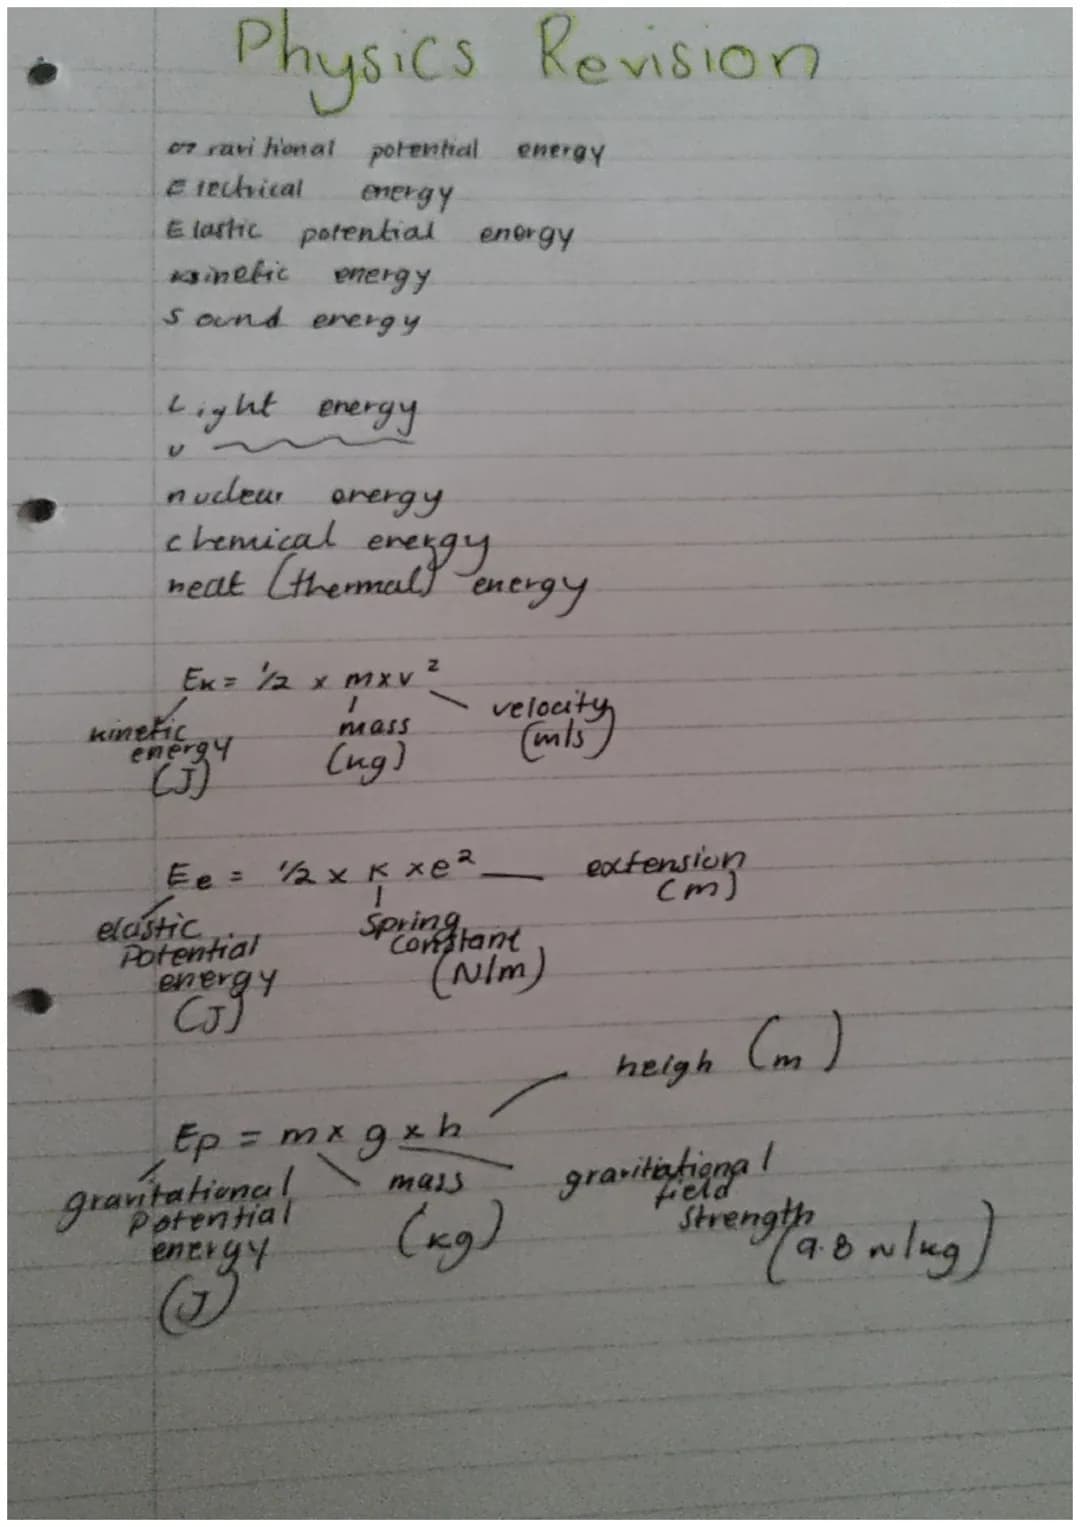 Physics Revision
Gravitional potential energy
Electrical energy
Elastic potential energy
kinetic energy
Sound energy
Light energy
nuclear energy
chemical energy
heat (thermal) energy
Ek = 1/2 x m x v²
kinetic energy (J)
mass (kg)
velocity (m/s)
Ee = 1/2 x K x e²
extension (m)
elastic Potential energy (J)
Spring constant (N/m)
heigh (m)
Ep = m x g x h
gravitational Potential energy (J)
mass (kg)
gravitiational field Strength (9.8 N/kg)